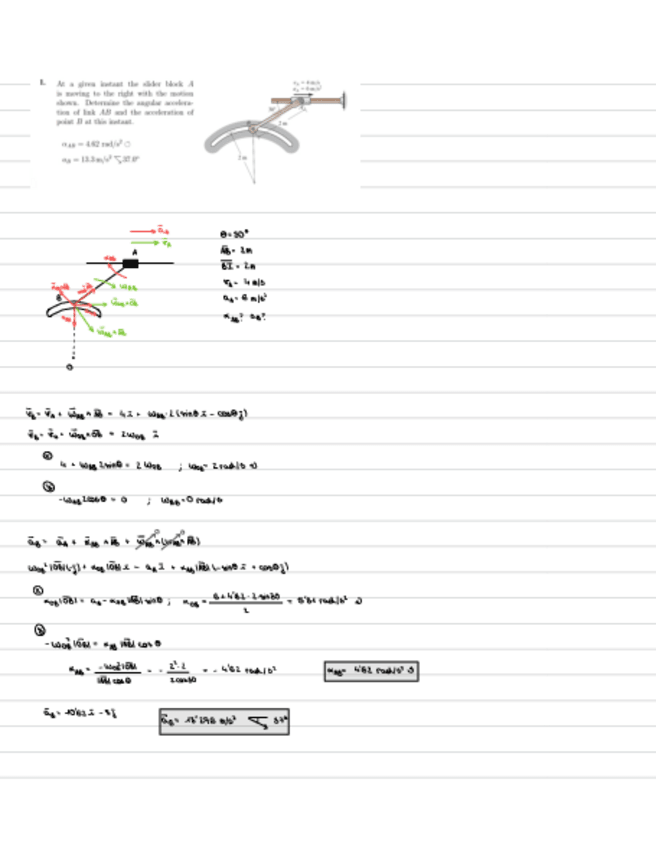 1. At a given instant the slider block A
is moving to the right with the motion
shown. Determine the angular accelera-
tion of link AB and the acceleration of
point B at this instant.
α_AB = 4.62 rad/s² ↻
a_B = 13.3 m/s² 37.0°
30°
2 m
2 m
ā_A
v̄_A
A
B
O
θ = 30°
AB = 2m
v_A = 4 m/s
a_A = 6 m/s²
α_AB? a_B?
v̄_B = v̄_A + ω̄_AB ∧ AB = 4 i + ω_AB · 2 (sinθ i - cosθ j)
= 2ω_OB i
4 + ω_AB 2 sinθ = 2 ω_OB ; ω_OB = 2 rad/s
-ω_AB 2cosθ = 0 ; ω_AB = 0 rad/s
ā_B = ā_A + ᾱ_AB ∧ AB +
ω_OB² |OB| (-j) + α_OB |OB| i = a_A i + α_AB |AB| (-sinθ i + cosθ j)
α_OB |OB| = a_A - α_AB |AB| sinθ ; α_OB = (6 + 4'62 · 2 · sin30) / 2 = 5'31 rad/s²
-ω_OB² |OB| = α_AB |AB| cosθ
α_AB = -ω_OB² |OB| / |AB| cosθ = - 2² · 2 / 2cos30 = - 4'62 rad/s²
α_AB = 4'62 rad/s²
ā_B = 10'62 i - 8 j
37°